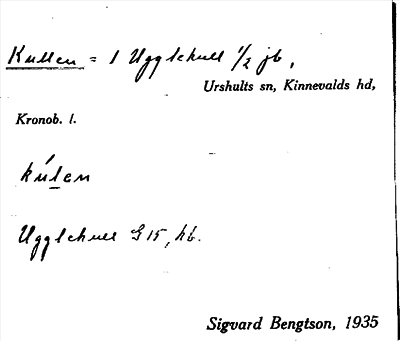 Kullen = 1 Ugglehull 1/2 jb,
Urshults sn, Kinnevalds hd,
Kronob. l.
kúlen
Ugglehull G 15, hb.
Sigvard Bengtson, 1935